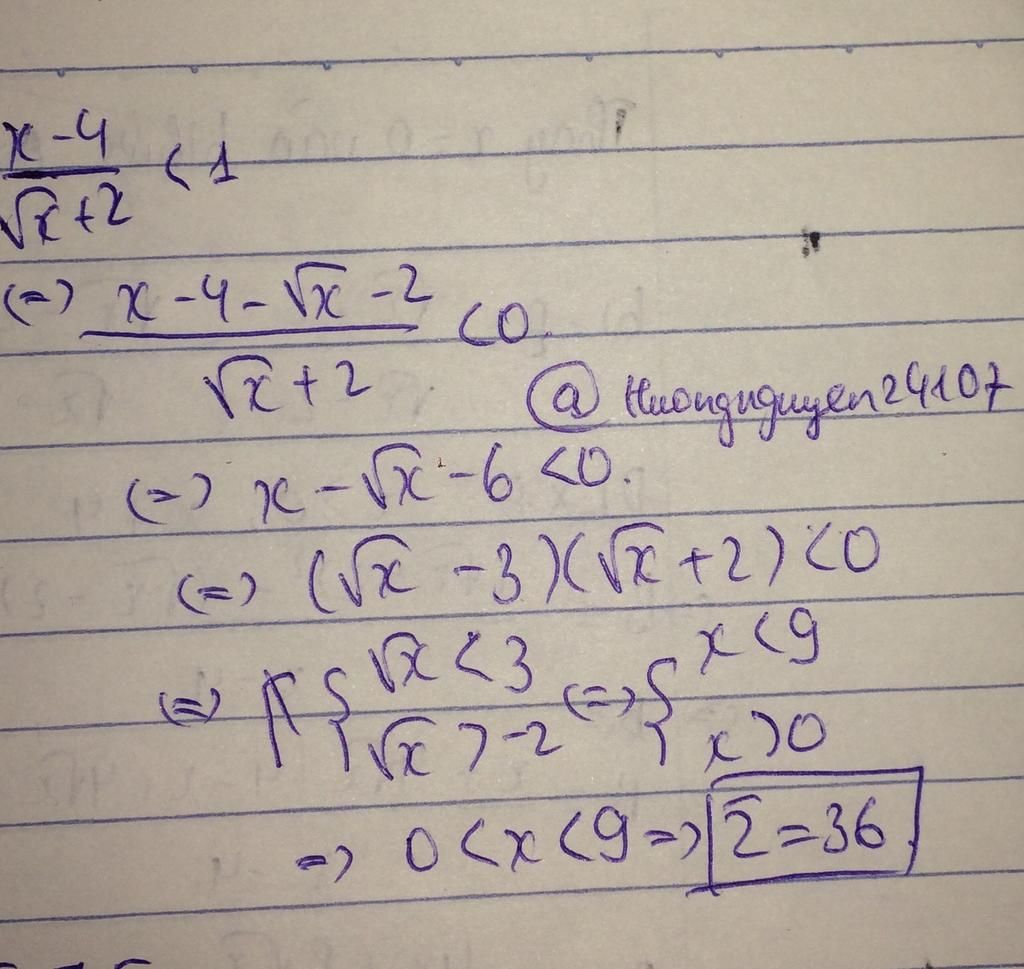 x-4/√x+2 < 1
(=) x-4-√x-2/√x+2 <0.
@ Huongnguyen24107
(=) x-√x-6 <0.
(=) (√x-3)(√x+2) <0
(=) { √x<3 (=) { x<9
√x>-2 x>0
=> 0<x<9 => Σ=36